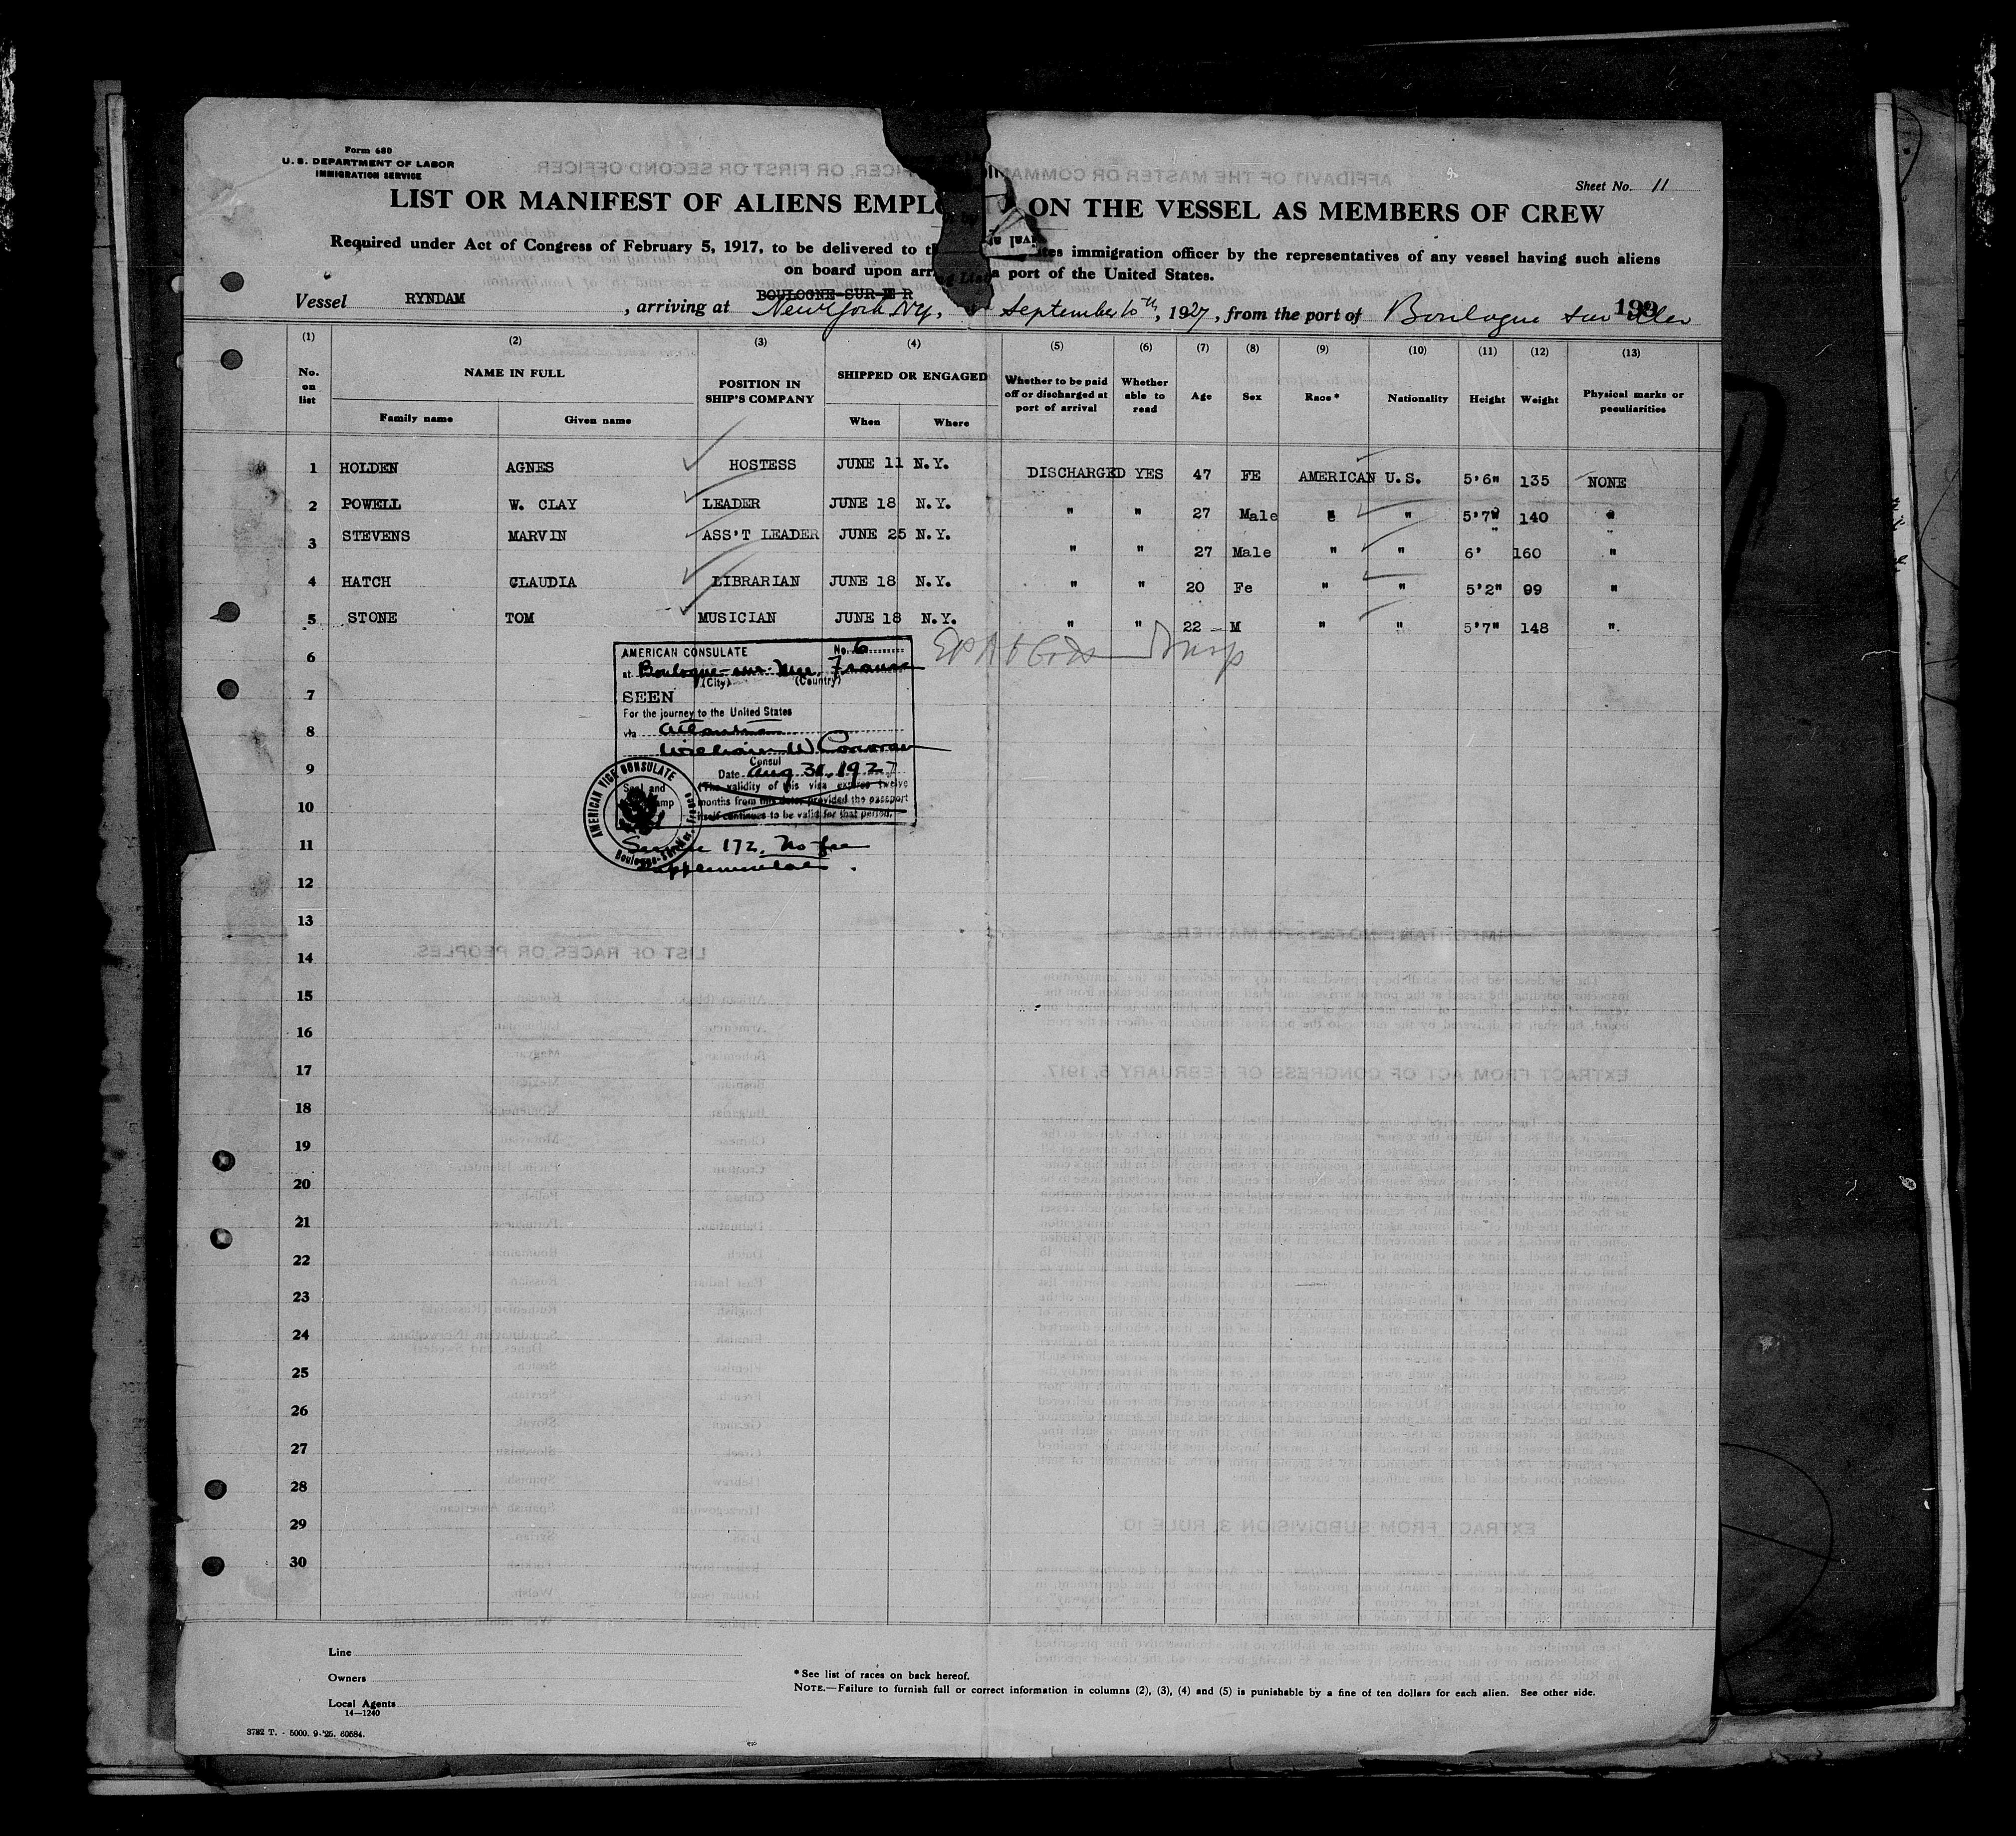 Form 680
U. S. DEPARTMENT OF LABOR
IMMIGRATION SERVICE
Sheet No. 11
LIST OR MANIFEST OF ALIENS EMPLO ON THE VESSEL AS MEMBERS OF CREW
Required under Act of Congress of February 5, 1917, to be delivered to th tes immigration officer by the representatives of any vessel having such aliens
on board upon arr a port of the United States.
BOULOGNE-SUR-MER
Vessel RYNDAM, arriving at New York, NY, September 10th, 1927, from the port of Boulogne sur Mer
199
(1) (2) (3) (4) (5) (6) (7) (8) (9) (10) (11) (12) (13)
No. on list NAME IN FULL Family name Given name POSITION IN SHIP'S COMPANY SHIPPED OR ENGAGED When Where Whether to be paid off or discharged at port of arrival Whether able to read Age Sex Race* Nationality Height Weight Physical marks or peculiarities
1 HOLDEN AGNES HOSTESS JUNE 11 N.Y. DISCHARGED YES 47 FE AMERICAN U.S. 5'6" 135 NONE
2 POWELL W. CLAY LEADER JUNE 18 N.Y. " " 27 Male " " 5'7" 140 "
3 STEVENS MARVIN ASS'T LEADER JUNE 25 N.Y. " " 27 Male " " 6' 160 "
4 HATCH CLAUDIA LIBRARIAN JUNE 18 N.Y. " " 20 Fe " " 5'2" 99 "
5 STONE TOM MUSICIAN JUNE 18 N.Y. " " 22 M " " 5'7" 148 ".
6
7
8
9
10
11
12
13
14
15
16
17
18
19
20
21
22
23
24
25
26
27
28
29
30
AMERICAN CONSULATE No. 6
at Boulogne-sur-Mer, France
(City) (Country)
SEEN
For the journey to the United States
via
William W. Corcoran
Consul
Date Aug 31, 1927
(The validity of this visa expires twelve
months from this date, provided the passport
itself continues to be valid for that period.
Seal and
AMERICAN VICE CONSULATE
Boulogne-Sur-Mer, France
172. No fee
Supplemental.
Line
Owners
Local Agents
14—1240
*See list of races on back hereof.
NOTE.—Failure to furnish full or correct information in columns (2), (3), (4) and (5) is punishable by a fine of ten dollars for each alien. See other side.
3782 T. - 5000. 9-'25. 60584.